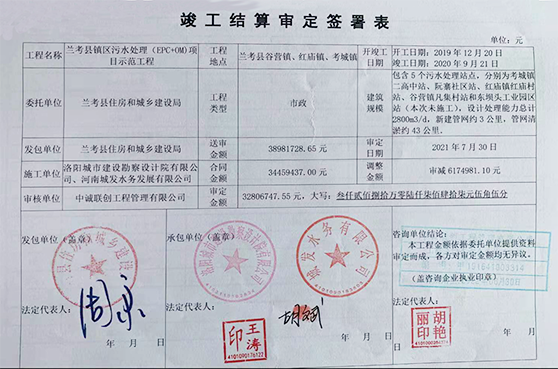 竣工结算审定签署表
单位：元
工程名称 兰考县镇区污水处理（EPC+OM)项目示范工程 工程地点 兰考县谷营镇、红庙镇、考城镇 开竣工日期 开工日期：2019 年 12 月 20 日
竣工日期：2020 年 9 月 21 日
委托单位 兰考县住房和城乡建设局 工程类型 市政 建筑规模 包含 5 个污水处理站点，分别为考城镇
二高中站、阮寨社区站、红庙镇红庙村
站、谷营镇凡集村站和东坝头工业园区
站（本次未施工），设计处理能力总计
2800m3/d，新建管网约 3 公里，管网清
淤约 43 公里。
发包单位 兰考县住房和城乡建设局 送审金额 38981728.65 元 审定日期 2021 年 7 月 30 日
施工单位 洛阳城市建设勘察设计院有限公司、河南城发水务发展有限公司 合同金额 34459437.00 元 调整金额 审减 6174981.10 元
审核单位 中诚联创工程管理有限公司 审定金额 32806747.55 元，大写：叁仟贰佰捌拾万零陆仟柒佰肆拾柒元伍角伍分
发包单位（盖章）
承包单位（盖章）
咨询单位结论：
本工程金额依据委托单位提供资料
审定而成，各方对审定金额均无异议。
（盖咨询企业执业印章）
法定代表人：
法定代表人：
法定代表人：
王涛印
4101090176122
胡艳丽印